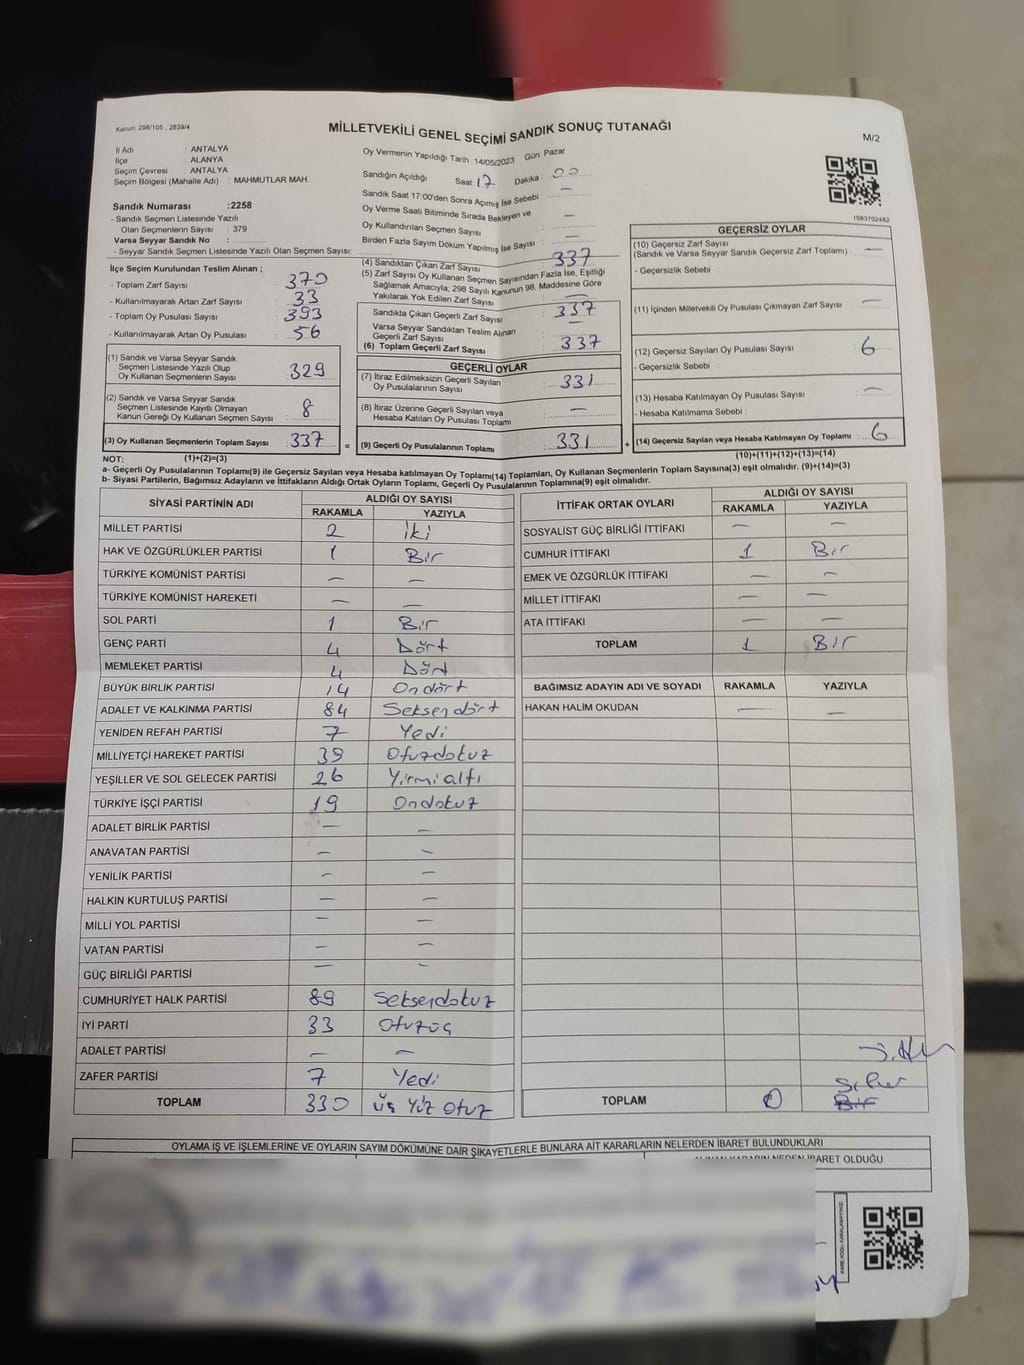 Kanun: 298/105 , 2839/4
MİLLETVEKİLİ GENEL SEÇİMİ SANDIK SONUÇ TUTANAĞI
M/2
İl Adı : ANTALYA
İlçe : ALANYA
Seçim Çevresi : ANTALYA
Seçim Bölgesi (Mahalle Adı) : MAHMUTLAR MAH.
Sandık Numarası :2258
- Sandık Seçmen Listesinde Yazılı
Olan Seçmenlerin Sayısı : 379
Varsa Seyyar Sandık No :
- Seyyar Sandık Seçmen Listesinde Yazılı Olan Seçmen Sayısı:
Oy Vermenin Yapıldığı Tarih :14/05/2023 Gün: Pazar
Sandığın Açıldığı Saat: 17 Dakika : 00
Sandık Saat 17:00'den Sonra Açımış İse Sebebi : —
Oy Verme Saati Bitiminde Sırada Bekleyen ve
Oy Kullandırılan Seçmen Sayısı : —
Birden Fazla Sayım Döküm Yapılmış İse Sayısı : —
1083702482
İlçe Seçim Kurulundan Teslim Alınan ;
- Toplam Zarf Sayısı : 370
- Kullanılmayarak Artan Zarf Sayısı : 33
- Toplam Oy Pusulası Sayısı : 393
- Kullanılmayarak Artan Oy Pusulası : 56
(1) Sandık ve Varsa Seyyar Sandık
Seçmen Listesinde Yazılı Olup
Oy Kullanan Seçmenlerin Sayısı : 329
(2) Sandık ve Varsa Seyyar Sandık
Seçmen Listesinde Kayıtlı Olmayan
Kanun Gereği Oy Kullanan Seçmen Sayısı : 8
(3) Oy Kullanan Seçmenlerin Toplam Sayısı : 337 =
(4) Sandıktan Çıkan Zarf Sayısı : 337
(5) Zarf Sayısı Oy Kullanan Seçmen Sayısından Fazla İse, Eşitliği
Sağlamak Amacıyla; 298 Sayılı Kanunun 98. Maddesine Göre
Yakılarak Yok Edilen Zarf Sayısı : —
Sandıkta Çıkan Geçerli Zarf Sayısı : 337
Varsa Seyyar Sandıktan Teslim Alınan
Geçerli Zarf Sayısı : —
(6) Toplam Geçerli Zarf Sayısı : 337
GEÇERLİ OYLAR
(7) İtiraz Edilmeksizin Geçerli Sayılan
Oy Pusulalarının Sayısı : 331
(8) İtiraz Üzerine Geçerli Sayılan veya
Hesaba Katılan Oy Pusulaları Toplamı : —
(9) Geçerli Oy Pusulalarının Toplamı : 331 +
GEÇERSİZ OYLAR
(10) Geçersiz Zarf Sayısı
(Sandık ve Varsa Seyyar Sandık Geçersiz Zarf Toplamı) : —
- Geçersizlik Sebebi :
(11) İçinden Milletvekili Oy Pusulası Çıkmayan Zarf Sayısı : —
(12) Geçersiz Sayılan Oy Pusulası Sayısı : 6
- Geçersizlik Sebebi :
(13) Hesaba Katılmayan Oy Pusulası Sayısı : —
- Hesaba Katılmama Sebebi :
(14) Geçersiz Sayılan veya Hesaba Katılmayan Oy Toplamı : 6
NOT: (1)+(2)=(3) (10)+(11)+(12)+(13)=(14)
a- Geçerli Oy Pusulalarının Toplamı(9) ile Geçersiz Sayılan veya Hesaba katılmayan Oy Toplamı(14) Toplamları, Oy Kullanan Seçmenlerin Toplam Sayısına(3) eşit olmalıdır. (9)+(14)=(3)
b- Siyasi Partilerin, Bağımsız Adayların ve İttifakların Aldığı Ortak Oyların Toplamı, Geçerli Oy Pusulalarının Toplamına(9) eşit olmalıdır.
SİYASİ PARTİNİN ADI ALDIĞI OY SAYISI
RAKAMLA YAZIYLA
MİLLET PARTİSİ 2 iki
HAK VE ÖZGÜRLÜKLER PARTİSİ 1 Bir
TÜRKİYE KOMÜNİST PARTİSİ — —
TÜRKİYE KOMÜNİST HAREKETİ — —
SOL PARTİ 1 Bir
GENÇ PARTİ 4 Dört
MEMLEKET PARTİSİ 4 Dört
BÜYÜK BİRLİK PARTİSİ 14 Ondört
ADALET VE KALKINMA PARTİSİ 84 Seksendört
YENİDEN REFAH PARTİSİ 7 Yedi
MİLLİYETÇİ HAREKET PARTİSİ 39 Otuzdokuz
YEŞİLLER VE SOL GELECEK PARTİSİ 26 Yirmialtı
TÜRKİYE İŞÇİ PARTİSİ 19 Ondokuz
ADALET BİRLİK PARTİSİ — —
ANAVATAN PARTİSİ — —
YENİLİK PARTİSİ — —
HALKIN KURTULUŞ PARTİSİ — —
MİLLİ YOL PARTİSİ — —
VATAN PARTİSİ — —
GÜÇ BİRLİĞİ PARTİSİ — —
CUMHURİYET HALK PARTİSİ 89 Seksendokuz
İYİ PARTİ 33 Otuzüç
ADALET PARTİSİ — —
ZAFER PARTİSİ 7 Yedi
TOPLAM 330 üç Yüz Otuz
İTTİFAK ORTAK OYLARI ALDIĞI OY SAYISI
RAKAMLA YAZIYLA
SOSYALİST GÜÇ BİRLİĞİ İTTİFAKI — —
CUMHUR İTTİFAKI 1 Bir
EMEK VE ÖZGÜRLÜK İTTİFAKI — —
MİLLET İTTİFAKI — —
ATA İTTİFAKI — —
TOPLAM 1 Bir
BAĞIMSIZ ADAYIN ADI VE SOYADI RAKAMLA YAZIYLA
HAKAN HALİM OKUDAN — —
TOPLAM 0 Sıfır
Bir
OYLAMA İŞ VE İŞLEMLERİNE VE OYLARIN SAYIM DÖKÜMÜNE DAİR ŞİKAYETLERLE BUNLARA AİT KARARLARIN NELERDEN İBARET BULUNDUKLARI